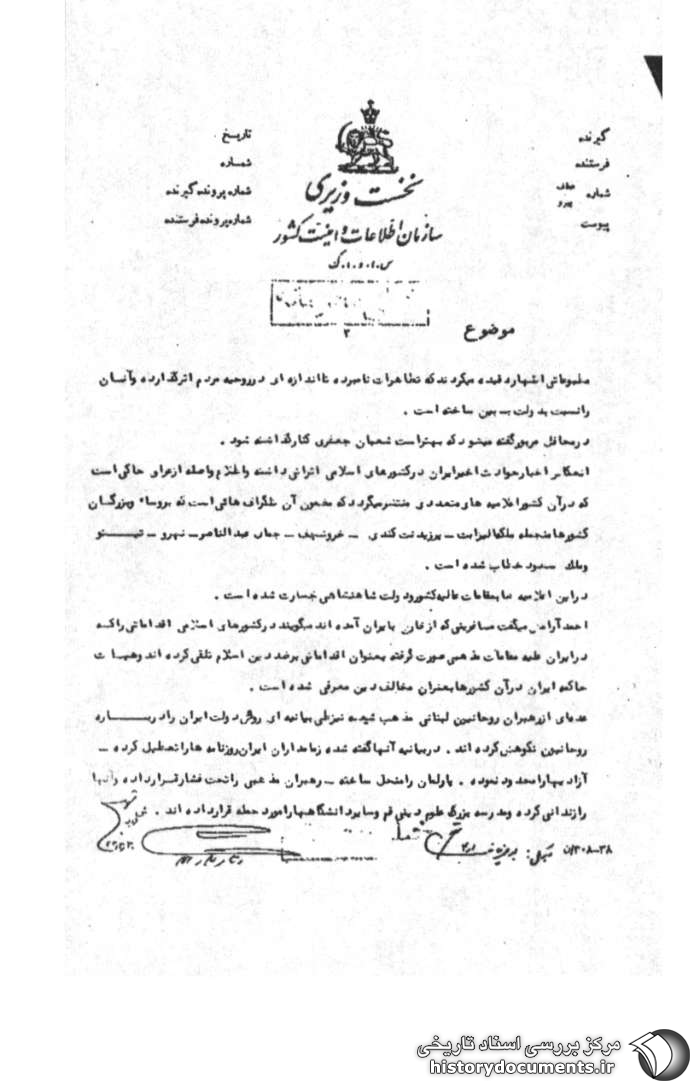 گیرنده
فرستنده
شماره عطف پیرو
پیوست
تاریخ
شماره
شماره پرونده گیرنده
شماره پرونده فرستنده
نخست وزیری
سازمان اطلاعات و امنیت کشور
س.ا.و.ا.ک
موضوع
۲
مطبوعاتی اظهار عقیده میکردند که تظاهرات نامبرده تا اندازه ای در روحیه مردم اثر گذارده و آنان
را نسبت بدولت بدبین ساخته است .
در محافل مزبور گفته میشود که بهتر است شعبان جعفری کنار گذاشته شود .
انعکاس اخبار حوادث اخیر ایران در کشورهای اسلامی اثراتی داشته و اطلاع واصله از عراق حاکی است
که در آن کشور اعلامیه های متعددی منتشر میگردد که مضمون آن تلگراف هائی است که بروساء و بزرگان
کشورها منجمله ملکه الیزابت ــ پرزیدنت کندی ــ خروشچف ــ جمال عبدالناصر ــ نهرو ــ تیتو
و ملک سعود خطاب شده است .
در این اعلامیه ها بمقامات عالیه کشور و دولت شاهنشاهی جسارت شده است .
احمد آرامش میگفت مسافرینی که از خارج بایران آمده اند میگویند در کشورهای اسلامی اقداماتی را که
در ایران علیه مقامات مذهبی صورت گرفته بعنوان اقداماتی بر ضد دین اسلام تلقی کرده اند و هیات
حاکمه ایران در آن کشورها بعنوان مخالف دین معرفی شده است .
عده ای از رهبران روحانیین لبنانی مذهب شیعه نیز طی بیانیه ای روش دولت ایران را درباره
روحانیین نکوهش کرده اند . در بیانیه آنها گفته شده زمامداران ایران روزنامه ها را تعطیل کرده ــ
آزادیها را محدود نموده . پارلمان را منحل ساخته ــ رهبران مذهبی را تحت فشار قرار داده و آنها
را زندانی کرده و مدرسه بزرگ علوم دینی قم و سایر دانشگاهها را مورد حمله قرار داده اند .
مرکز بررسی اسناد تاریخی
historydocuments.ir